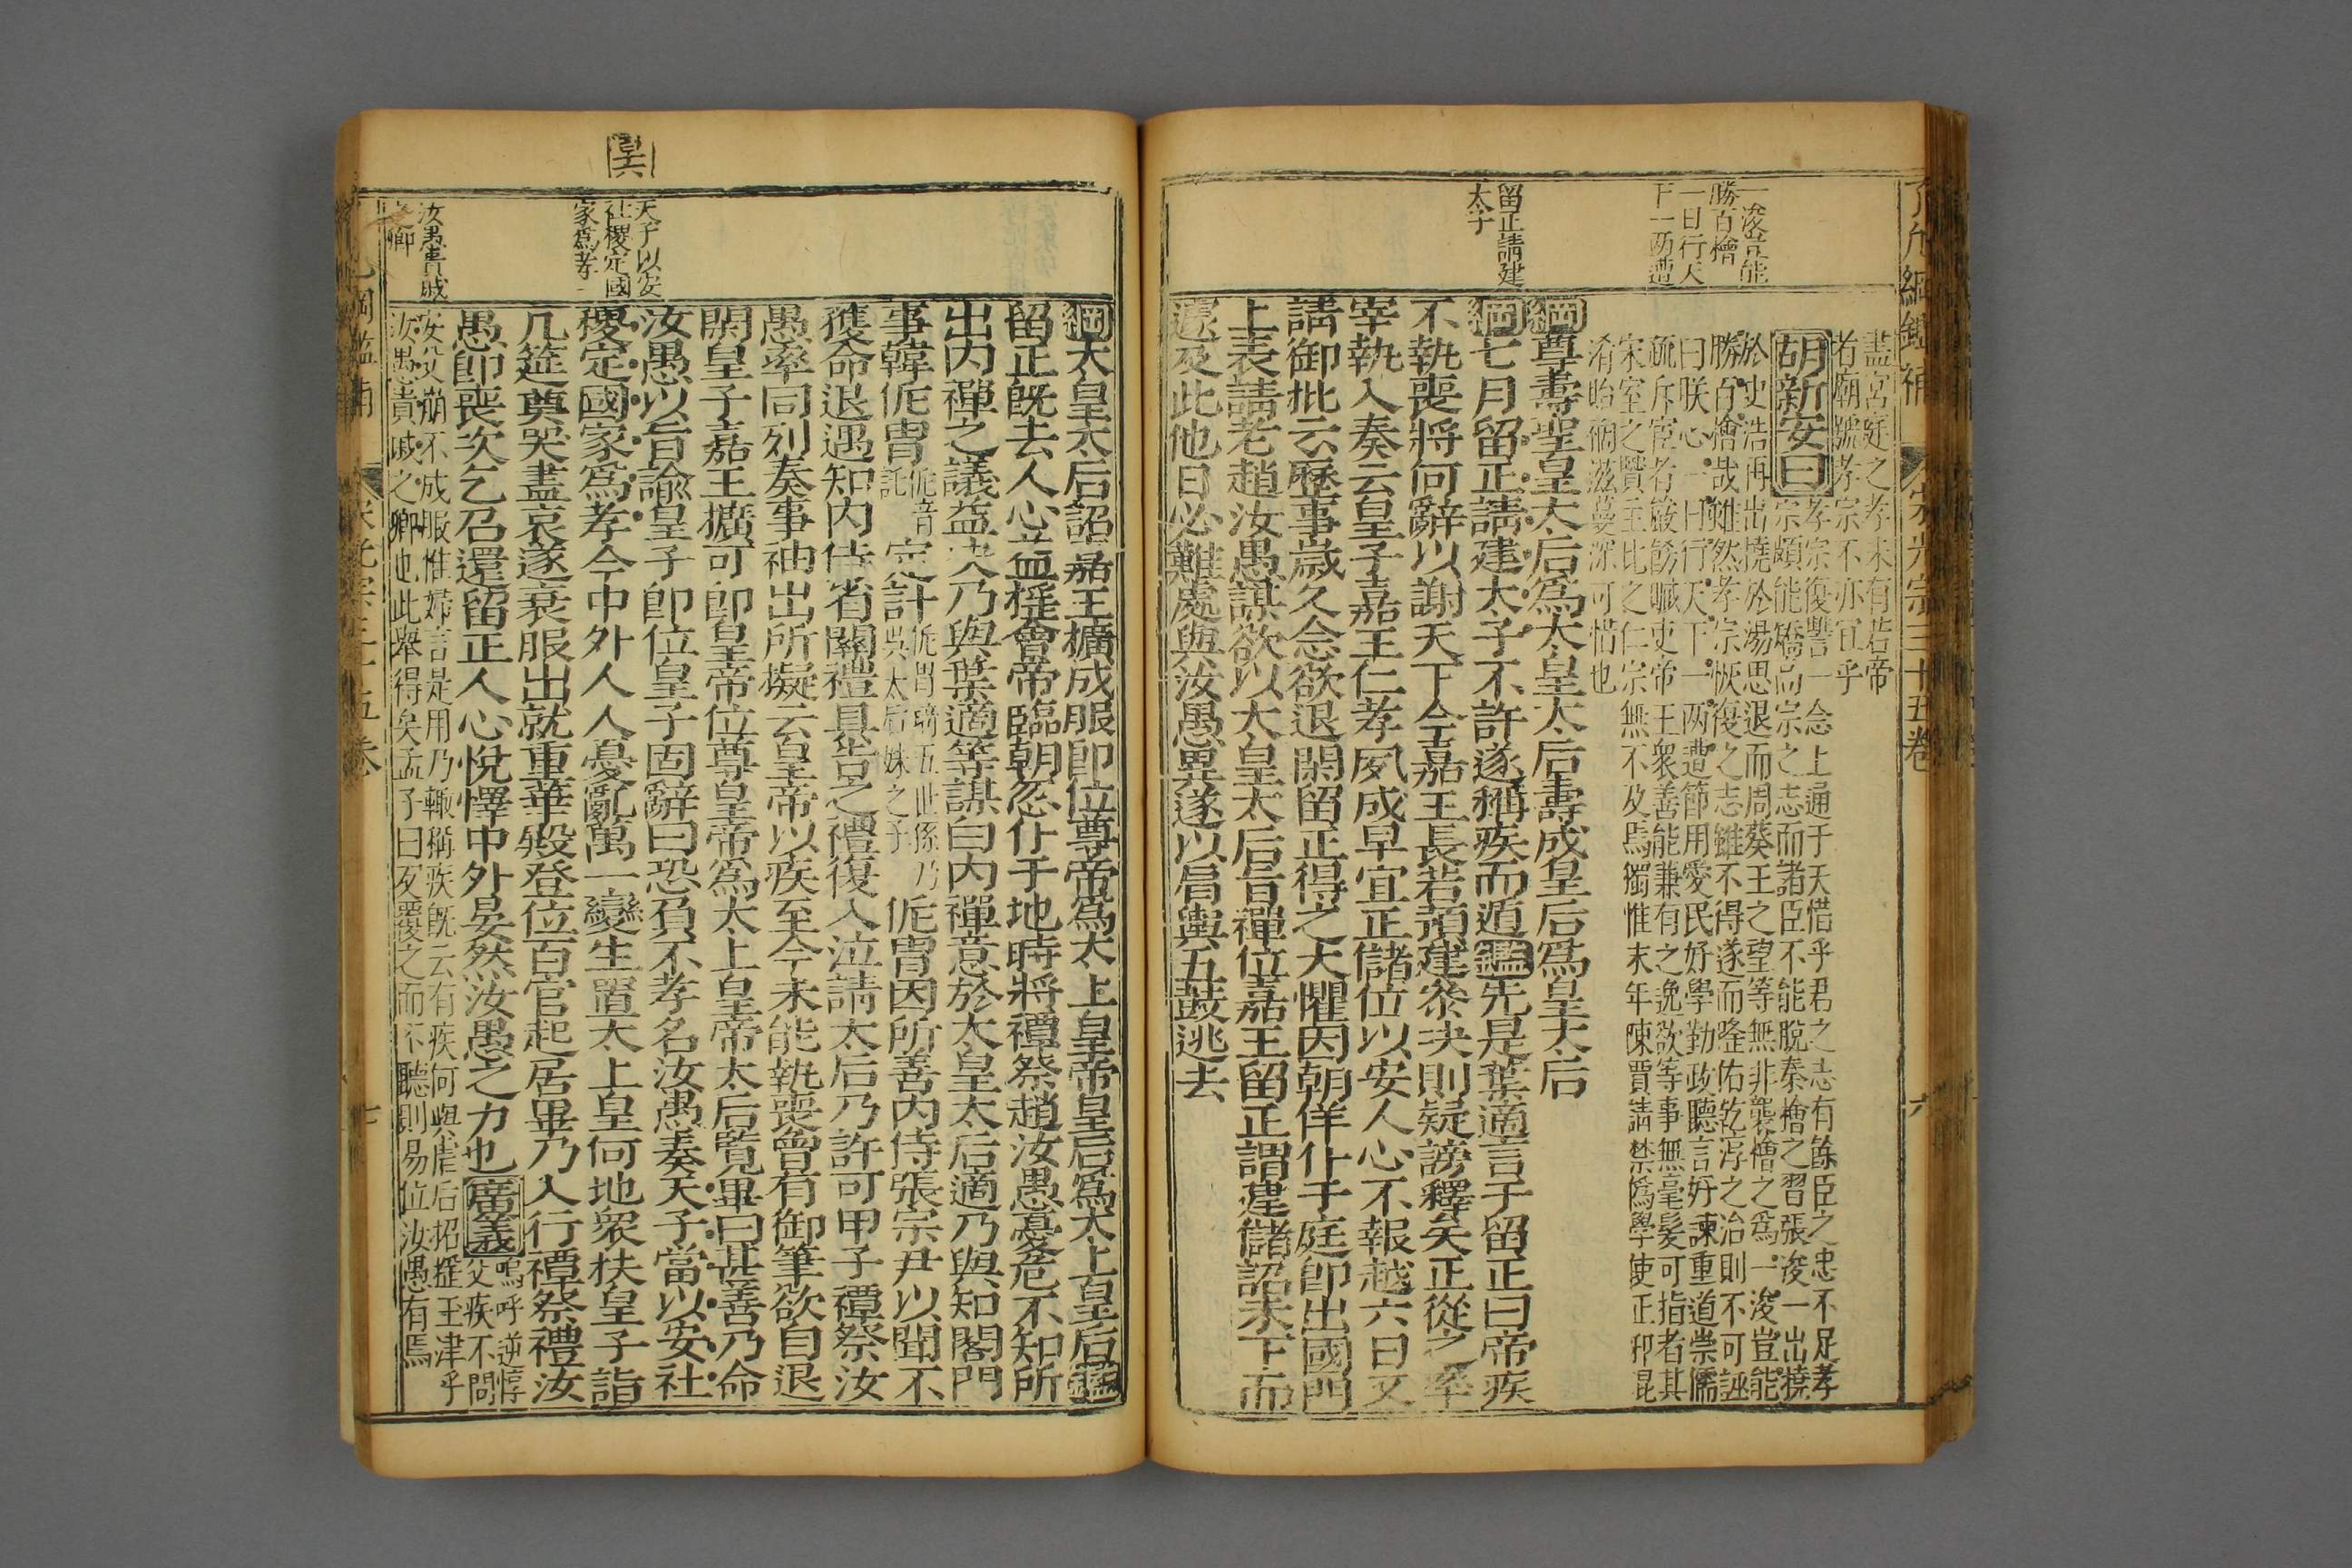 了凡綱鑑補
宋光宗三十五卷
六
一浚豈能
勝百檜
一日行天
下一两遭
留正請建
太子
盡宮庭之孝未有若帝
者廟號孝宗不亦宜乎
胡新安曰
孝宗復讐一念上通于天惜乎君之志有餘臣之忠不足孝
宗頗能矯高宗之志而諸臣不能脫秦檜之習張浚一出撓
於史浩再出撓於湯思退而周葵王之望等無非襲檜之爲一浚豈能
勝百檜哉雖然孝宗恢復之志雖不得遂而隆佑乾淳之治則不可誣
曰朕心一日行天下一两遭節用愛民好學勤政聽言好諫重道崇儒
疏斥宦者嚴飭贓吏帝王衆善能兼有之逸欲等事無毫髮可指者其
宋室之賢主比之仁宗無不及焉獨惟末年陳賈請禁僞學使正抑混
淆貽禍滋蔓深可惜也
綱尊壽聖皇太后爲太皇太后壽成皇后爲皇太后
綱七月留正請建太子不許遂稱疾而遁鑑先是葉適言于留正曰帝疾
不執喪將何辭以謝天下今嘉王長若預建參决則疑謗釋矣正從之率
宰執入奏云皇子嘉王仁孝夙成早宜正儲位以安人心不報越六日又
請御批云歷事歲久念欲退閑留正得之大懼因朝佯仆于庭卽出國門
上表請老趙汝愚謀欲以太皇太后旨禪位嘉王留正謂建儲詔未下而
遽及此他日必難處與汝愚異遂以肩輿五鼓逃去
綱太皇太后詔嘉王擴成服卽位尊帝爲太上皇帝皇后爲太上皇后鑑
留正旣去人心益搖會帝臨朝忽仆于地時將禫祭趙汝愚憂危不知所
出内禪之議益决乃與葉適等謀白内禪意於太皇太后適乃與知閤門
事韓侂胄侂音託定計侂胄琦五世孫乃吳太后妹之子侂胄因所善内侍張宗尹以聞不
獲命退遇知内侍省關禮具告之禮復入泣請太后乃許可甲子禫祭汝
愚率同列奏事袖出所擬云皇帝以疾至今未能執喪曾有御筆欲自退
閑皇子嘉王擴可卽皇帝位尊皇帝爲太上皇帝太后覽畢曰甚善乃命
汝愚以旨諭皇子卽位皇子固辭曰恐負不孝名汝愚奏天子當以安社
稷定國家爲孝今中外人人憂亂萬一變生置太上皇何地衆扶皇子詣
几筵奠哭盡哀遂衰服出就重華殿登位百官起居畢乃入行禫祭禮汝
愚卽喪次乞召還留正人心悅懌中外晏然汝愚之力也廣義嗚呼逆惇
父疾不問
安父崩不成服惟婦言是用乃輙稱疾旣云有疾何與虐后招搖玉津乎
汝愚貴戚之卿也此舉得矣孟子曰反覆之而不聽則易位汝愚有焉
天子以安
社稷定國
家爲孝
汝愚貴戚
之卿